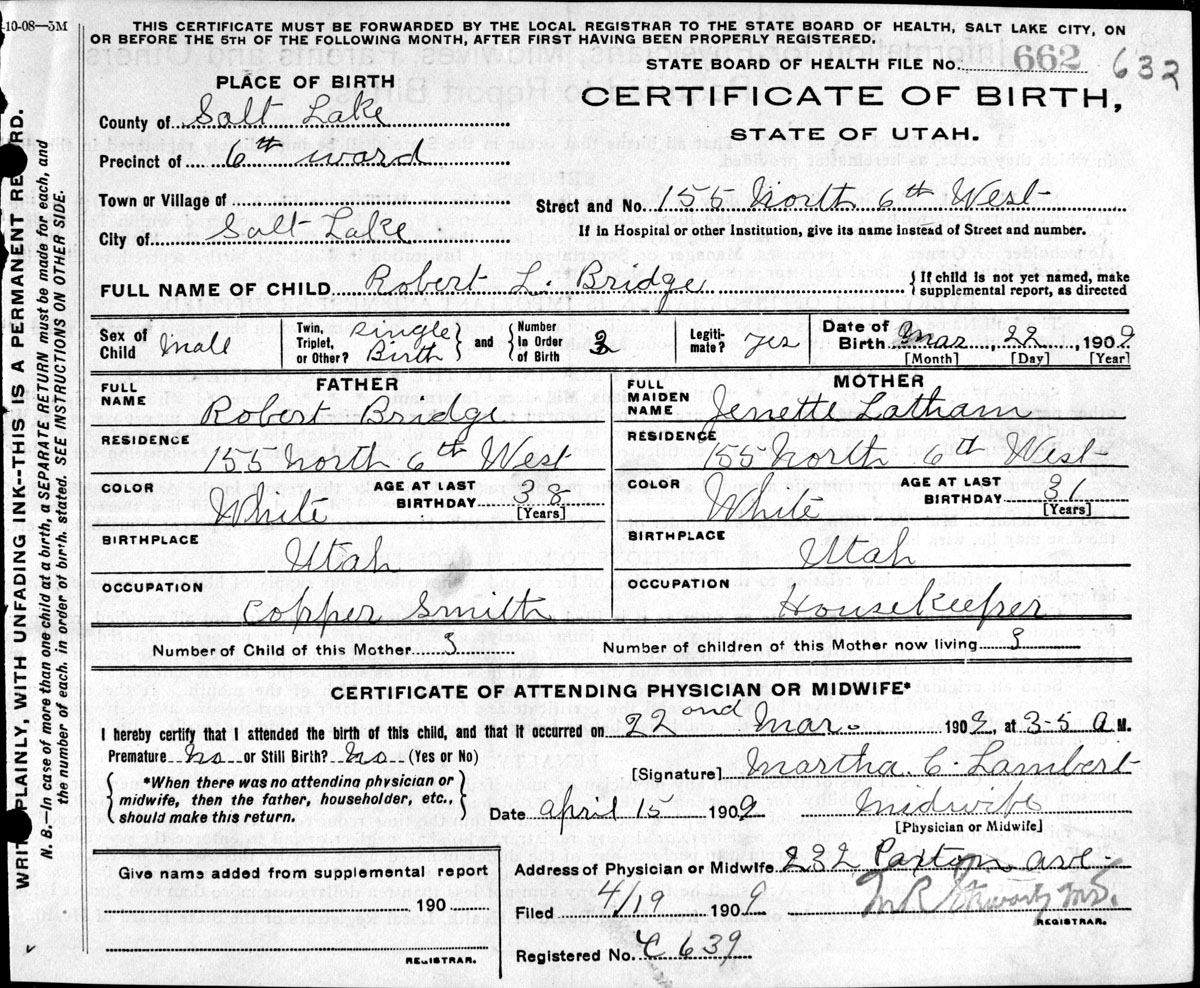 10-08—5M
THIS CERTIFICATE MUST BE FORWARDED BY THE LOCAL REGISTRAR TO THE STATE BOARD OF HEALTH, SALT LAKE CITY, ON
OR BEFORE THE 5TH OF THE FOLLOWING MONTH, AFTER FIRST HAVING BEEN PROPERLY REGISTERED.
STATE BOARD OF HEALTH FILE No. 662 632
PLACE OF BIRTH
CERTIFICATE OF BIRTH,
STATE OF UTAH.
County of Salt Lake
Precinct of 6th Ward
Town or Village of
Street and No. 155 North 6th West
City of Salt Lake
If in Hospital or other Institution, give its name instead of Street and number.
FULL NAME OF CHILD Robert L. Bridge
{If child is not yet named, make
supplemental report, as directed
Sex of Child Male
Twin, Triplet, or Other? Single Birth } and { Number in Order of Birth
Legitimate? Yes
Date of Birth Mar, 22, 1909
[Month] [Day] [Year]
FATHER
FULL NAME Robert Bridge
RESIDENCE 155 North 6th West
COLOR White
AGE AT LAST BIRTHDAY 38
[Years]
BIRTHPLACE Utah
OCCUPATION Copper Smith
MOTHER
FULL MAIDEN NAME Jenette Latham
RESIDENCE 155 North 6th West
COLOR White
AGE AT LAST BIRTHDAY 31
[Years]
BIRTHPLACE Utah
OCCUPATION Housekeeper
Number of Child of this Mother 3
Number of children of this Mother now living 3
CERTIFICATE OF ATTENDING PHYSICIAN OR MIDWIFE*
I hereby certify that I attended the birth of this child, and that it occurred on 22 and Mar. 1909, at 3-5 a M.
Premature? No or Still Birth? No (Yes or No)
{*When there was no attending physician or
midwife, then the father, householder, etc.,
should make this return.}
[Signature] Martha. C. Lambert
Date April 15 1909
Midwife
[Physician or Midwife]
Give name added from supplemental report
190
REGISTRAR.
Address of Physician or Midwife 232 Paxton ave.
Filed 4/19 1909
REGISTRAR.
Registered No. C 639
WRITE PLAINLY, WITH UNFADING INK--THIS IS A PERMANENT RECORD.
N. B.—In case of more than one child at a birth, a SEPARATE RETURN must be made for each, and
the number of each, in order of birth, stated. SEE INSTRUCTIONS ON OTHER SIDE.